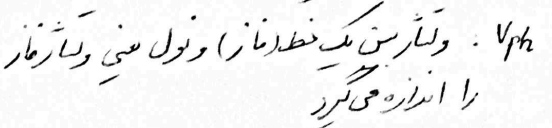 Vph : ولتاژ بین یک خط (فاز) و نول یعنی ولتاژ فاز
را اندازه می گیرد